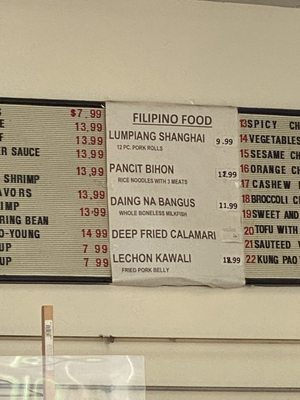 $7.99
13.99
13.99
R SAUCE 13.99
13.99
SHRIMP
AVORS 13.99
IMP 13.99
RING BEAN
O-YOUNG 14.99
UP 7.99
UP 7.99
FILIPINO FOOD
LUMPIANG SHANGHAI 9.99
12 PC. PORK ROLLS
PANCIT BIHON
RICE NOODLES WITH 3 MEATS
DAING NA BANGUS 11.99
WHOLE BONELESS MILKFISH
DEEP FRIED CALAMARI
LECHON KAWALI
FRIED PORK BELLY
13 SPICY
14 VEGETABLES
15 SESAME
16 ORANGE
17 CASHEW
18 BROCCOLI
19 SWEET AND
20 TOFU WITH
21 SAUTEED
22 KUNG PAO